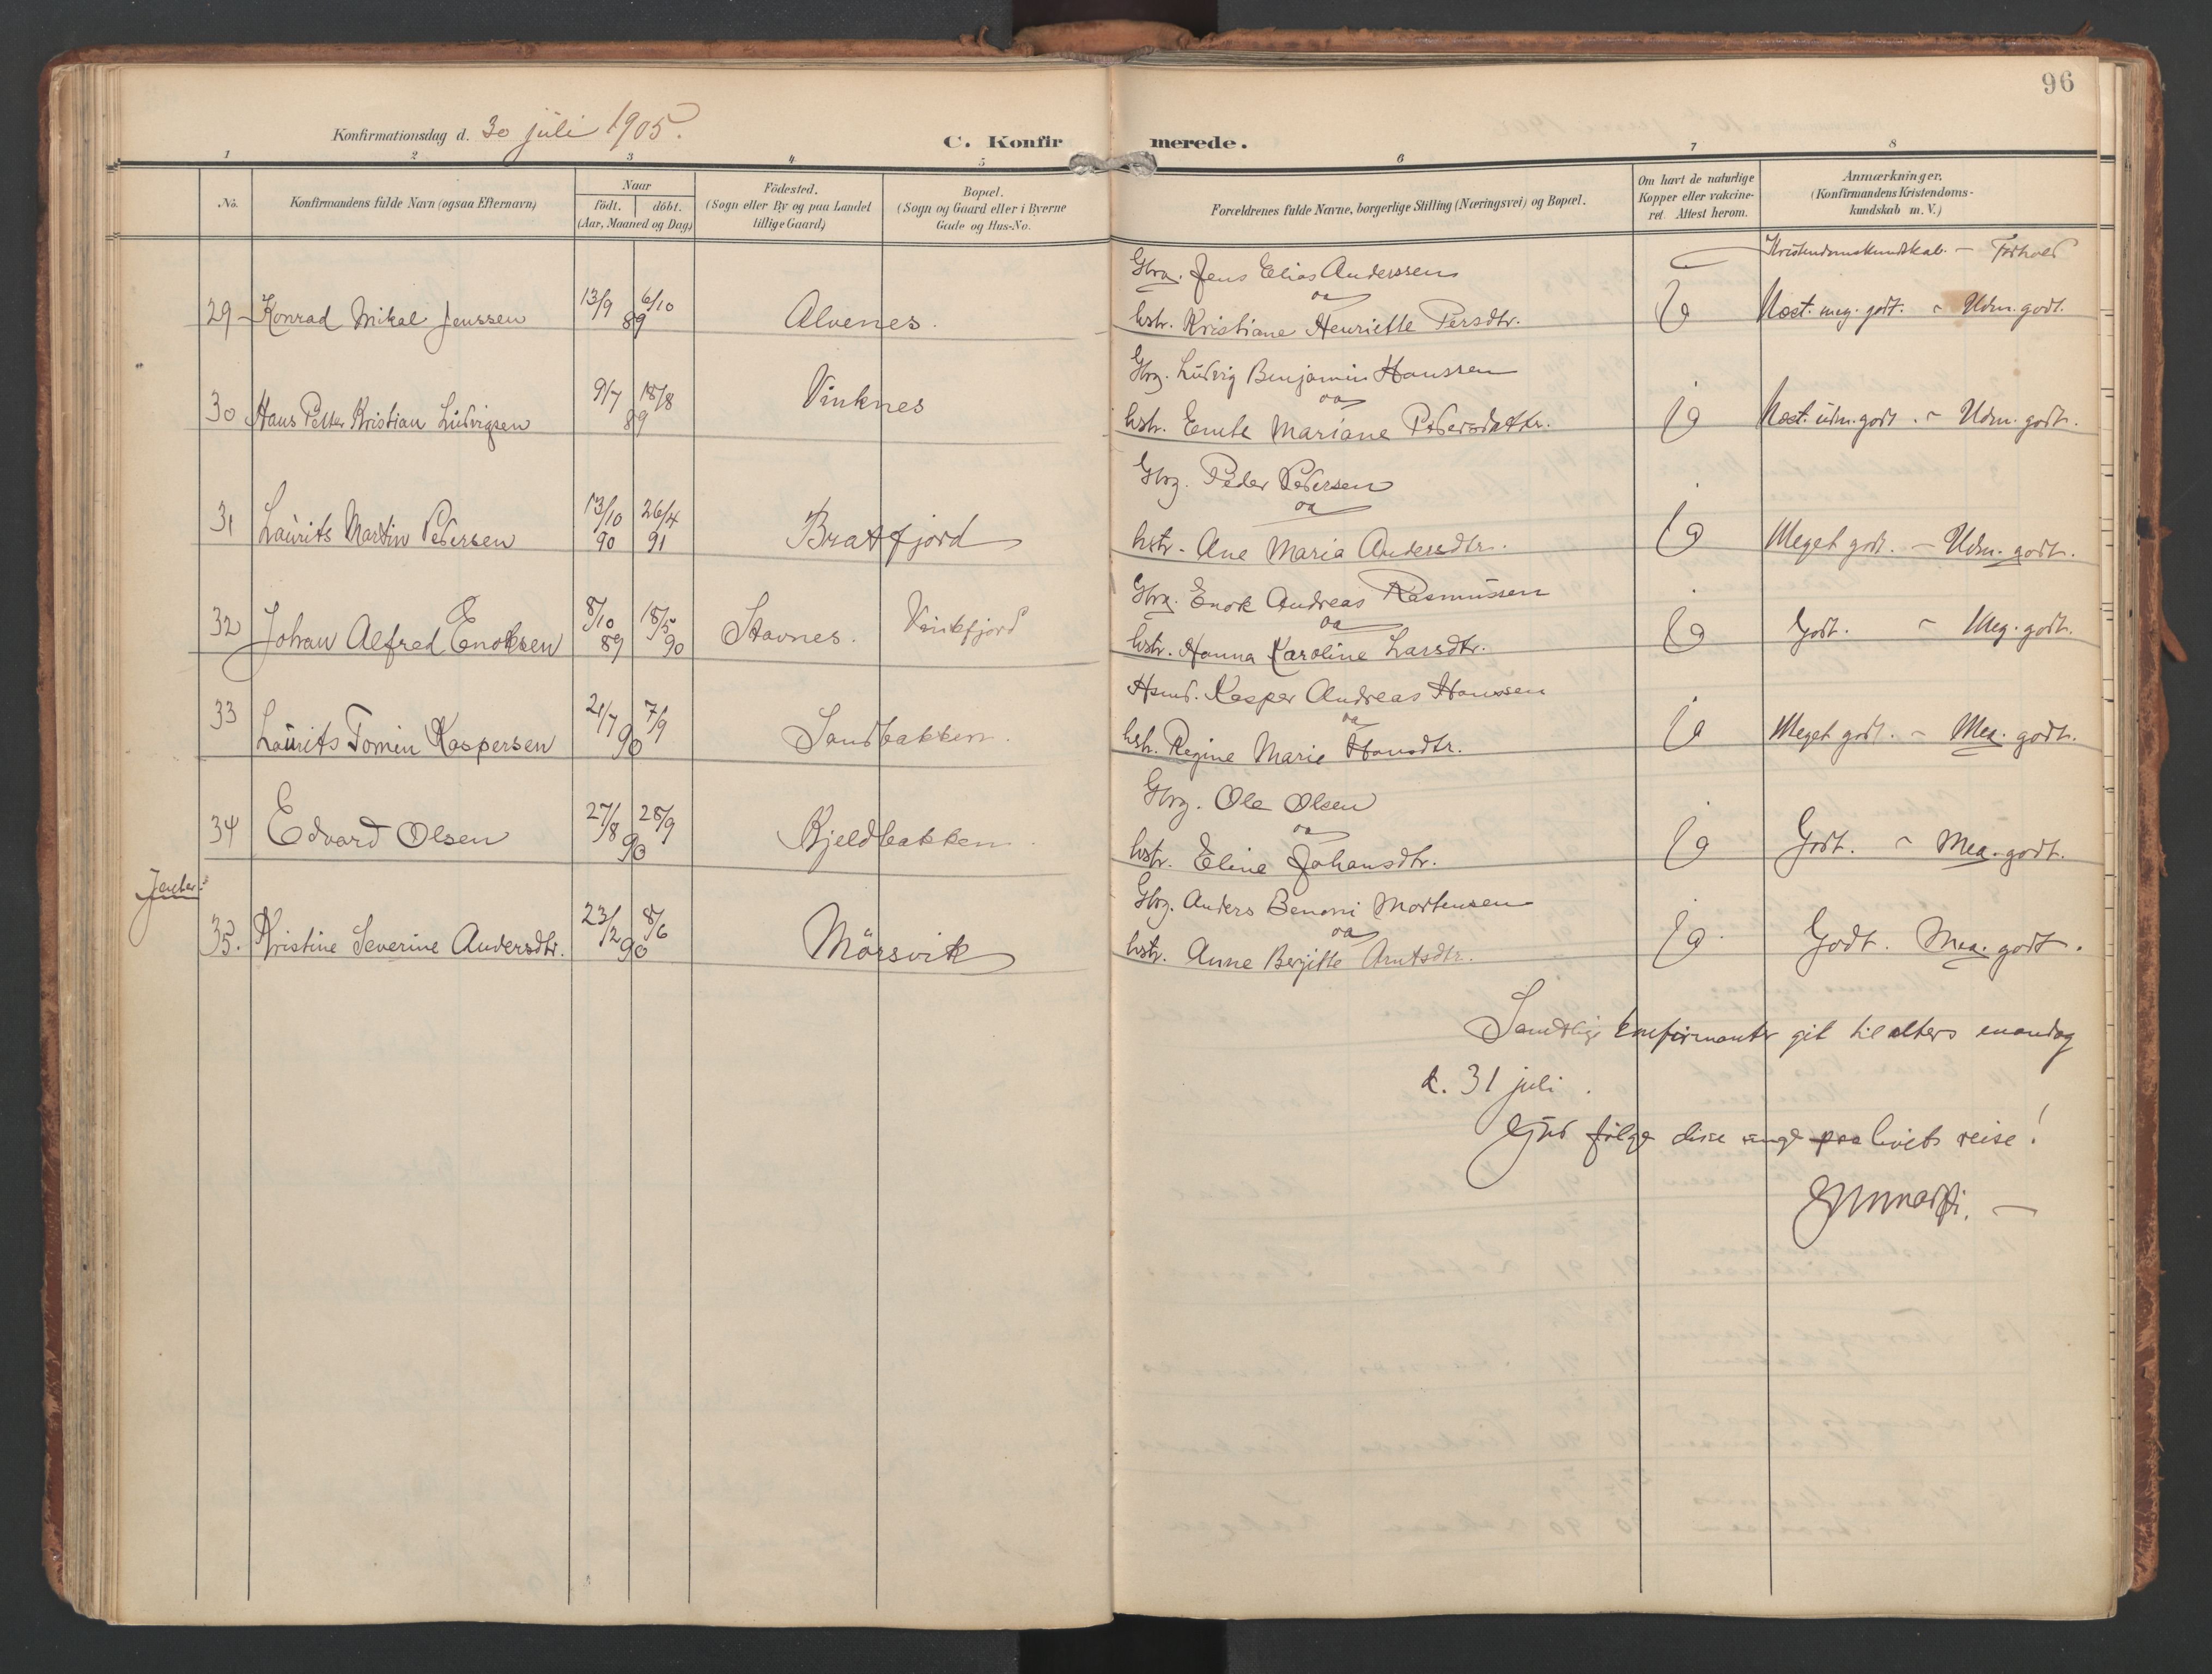 96
Konfirmationsdag d. 30 juli 1905.
C. Konfirmerede.
1 2 3 4 5 6 7 8
No.
Konfirmandens fulde Navn (ogsaa Efternavn)
Naar
Födt. döbt.
(Aar, Maaned og Dag)
Födested.
(Sogn eller By og paa Landet
tillige Gaard)
Bopæl.
(Sogn og Gaard eller i Byerne
Gade og Hus-No.
Forældrenes fulde Navne, borgerlige Stilling (Næringsvei) og Bopæl.
Om havt de naturlige
Kopper eller vakcine-
ret. Attest herom.
Anmærkninger.
(Konfirmandens Kristendoms-
kundskab m. V.)
Kristendomskundskab. – Forhold
Gbrg. Jens Elias Anderssen
oa
29 – Konrad Mikal Jenssen 13/9 6/10 89 Alvenes. hstr. Kristiane Henriette Persdtr. ja Næst. meg. godt. – Udm. godt.
Gbrg. Ludvig Benjamin Hanssen
oa
30 Hans Petter Kristian Ludvigsen 9/7 18/8 89 Vinknes hstr. Emte Mariane Pedersdattr. ja Næst. udm. godt. – Udm. godt.
Gbrg. Peder Pedersen
oa
31 Laurits Martin Pedersen 13/10 90 26/4 91 Bratfjord hstr. Ane Maria Andersdtr. ja Meget godt. – Udm. godt.
Gbrg. Enok Andreas Rasmussen
oa
32 Johan Alfred Enoksen 8/10 89 18/5 90 Stavnes. Vinkfjord hstr. Hanna Karoline Larsdtr. ja Godt. – Meg. godt.
Hsmd. Kasper Andreas Hanssen
oa
33 Laurits Tomin Kaspersen 21/7 7/9 90 Sandbakken. hstr. Regine Marie Hansdtr. ja Meget godt. – Meg. godt.
Gbrg. Ole Olsen
oa
34 Edvard Olsen 27/8 28/9 90 Kjeldbakken. hstr. Eline Johansdtr. ja Godt. – Meg. godt.
Jenter:
Gbrg. Anders Benoni Mortensen
oa
35. Kristine Severine Andersdtr. 23/2 8/6 90 Mörsvik hstr. Anne Bergitte Arntsdtr. ja Godt. Meg. godt.
Samtlige konfirmanter git til alters mandag
d. 31 juli.
Gud følge disse unge paa livets reise!